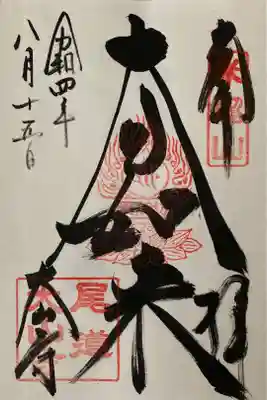 奉拝
大日如来
令和四年
八月十五日
大山寺
尾道